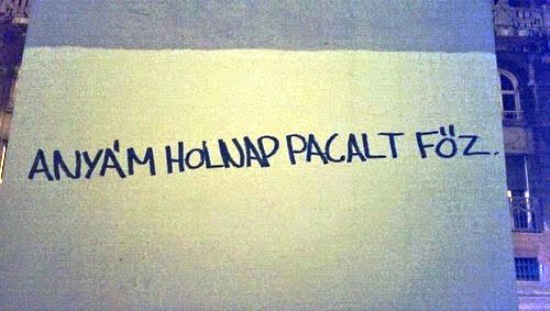 ANYÁM HOLNAP PACALT FÖZ.